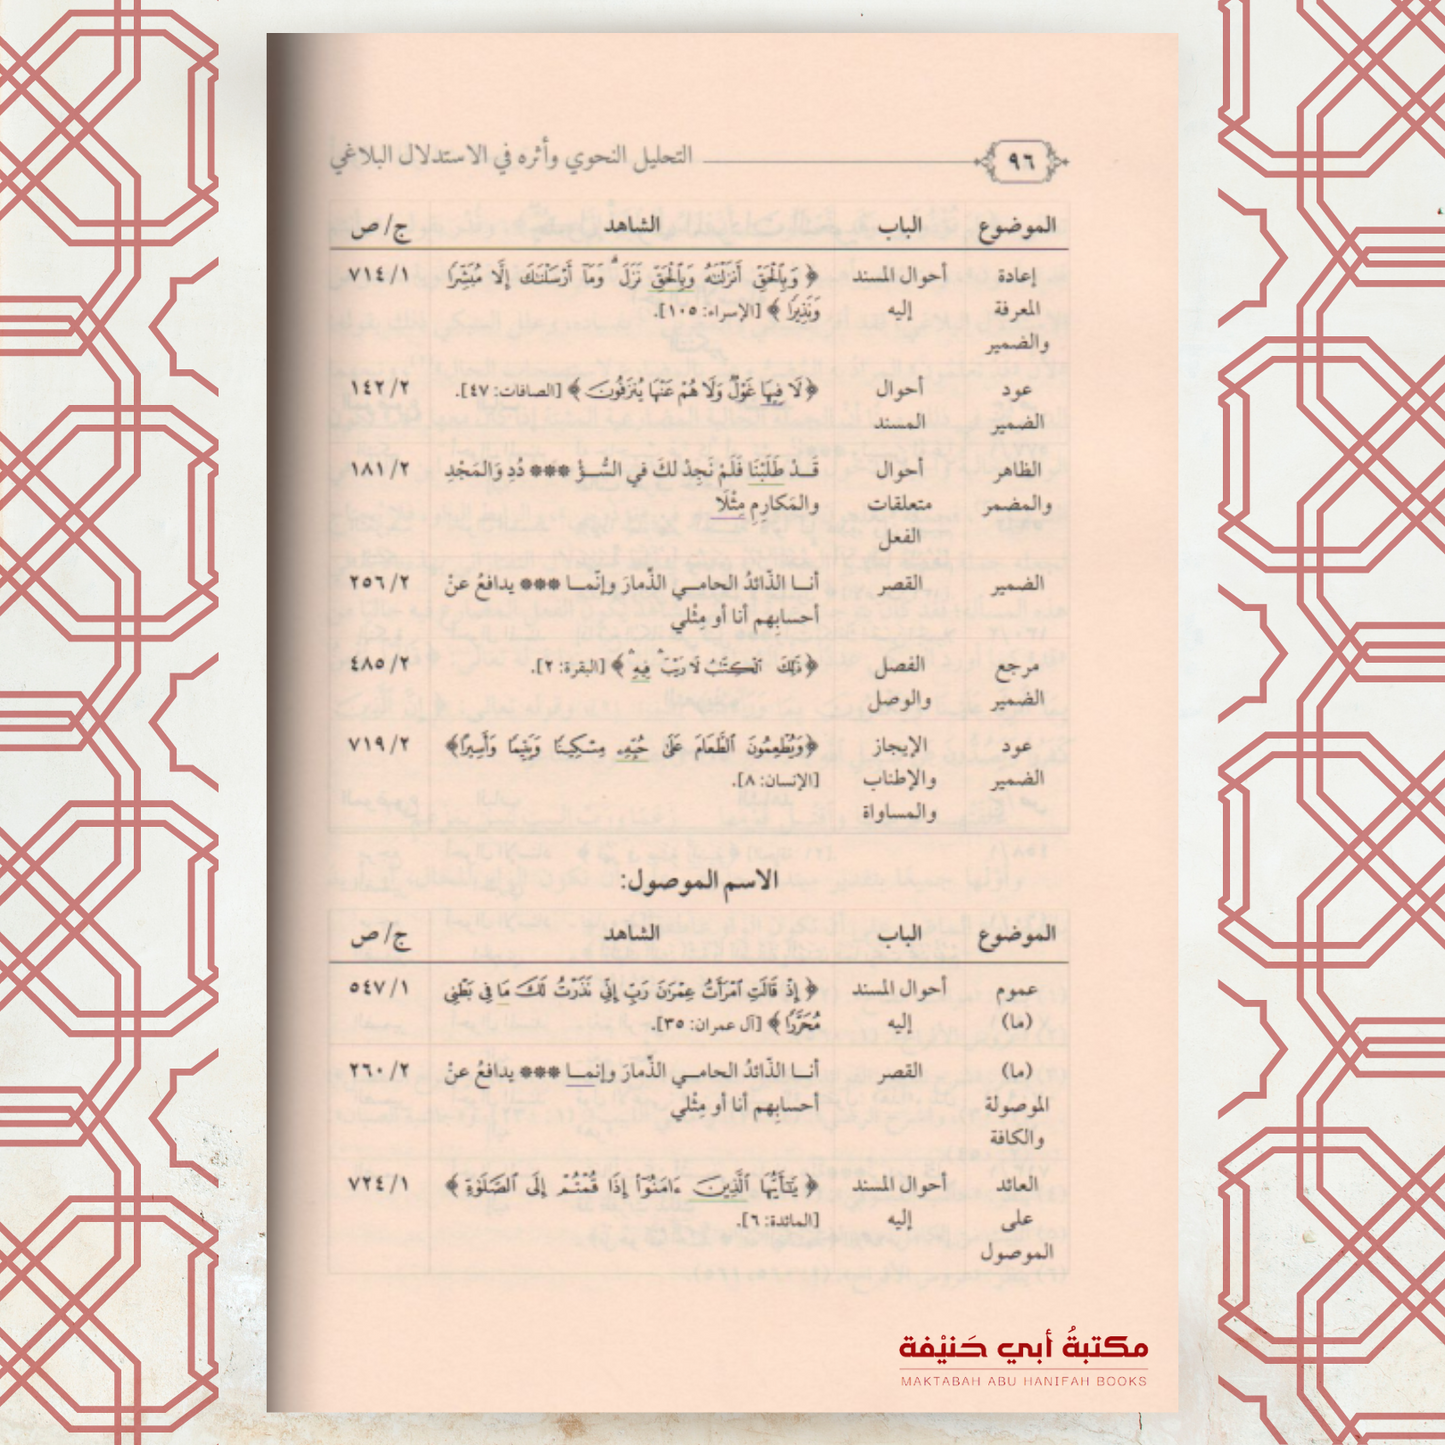 ٩٦ التحليل النحوي وأثره في الاستدلال البلاغي
الموضوع الباب الشاهد ج/ ص
إعادة أحوال المسند ﴿ وَبِالْحَقِّ أَنزَلْنَاهُ وَبِالْحَقِّ نَزَلَ ۗ وَمَا أَرْسَلْنَاكَ إِلَّا مُبَشِّرًا ٧١٤/١
المعرفة إليه وَنَذِيرًا ﴾ [الإسراء: ١٠٥].
والضمير
عود أحوال ﴿لَا فِيهَا غَوْلٌ وَلَا هُمْ عَنْهَا يُنزَفُونَ ﴾ [الصافات: ٤٧]. ١٤٢/٢
الضمير المسند
الظاهر أحوال قَـدْ طَلَبْنَا فَلَمْ نَجِدْ لكَ في السُّـؤْ *** دُدِ وَالمَجْدِ ١٨١/٢
والمضمر متعلقات والمَكارِمِ مِثْلَا
الفعل
الضمير القصر أنـا الذّائدُ الحامـي الذّمارَ وإنّمـا *** يدافعُ عنْ ٢٥٦/٢
أحسابِهم أنا أو مِثْلي
مرجع الفصل ﴿ذَٰلِكَ الْكِتَابُ لَا رَيْبَ ۛ فِيهِ ۛ ﴾ [البقرة: ٢]. ٤٨٥/٢
الضمير والوصل
عود الإيجاز ﴿وَيُطْعِمُونَ الطَّعَامَ عَلَىٰ حُبِّهِ مِسْكِينًا وَيَتِيمًا وَأَسِيرًا﴾ ٧١٩/٢
الضمير والإطناب [الإنسان: ٨].
والمساواة
الاسم الموصول:
الموضوع الباب الشاهد ج/ ص
عموم أحوال المسند ﴿ إِذْ قَالَتِ امْرَأَتُ عِمْرَانَ رَبِّ إِنِّي نَذَرْتُ لَكَ مَا فِي بَطْنِي ٥٤٧/١
(ما) إليه مُحَرَّرًا ﴾ [آل عمران: ٣٥].
(ما) القصر أنـا الذّائدُ الحامـي الذّمارَ وإنمـا *** يدافعُ عنْ ٢٦٠/٢
الموصولة أحسابِهم أنا أو مِثْلي
والكافة
العائد أحوال المسند ﴿ يَا أَيُّهَا الَّذِينَ ءَامَنُوا إِذَا قُمْتُمْ إِلَى الصَّلَوٰةِ ﴾ ٧٢٤/١
على إليه [المائدة: ٦].
الموصول
مكتبةُ أبي حَنيْفة
MAKTABAH ABU HANIFAH BOOKS